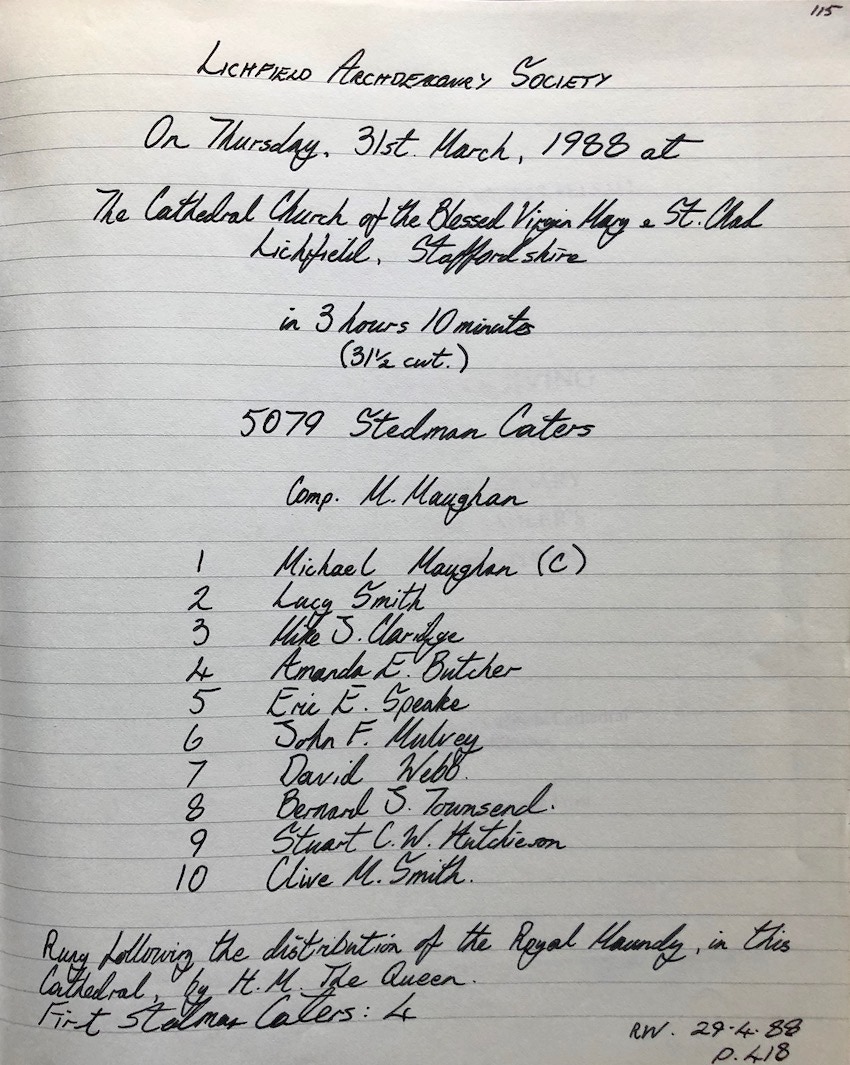 115
LICHFIELD ARCHDEACONRY SOCIETY
On Thursday, 31st. March, 1988 at
The Cathedral Church of the Blessed Virgin Mary & St. Chad
Lichfield, Staffordshire
in 3 hours 10 minutes
(31½ cwt.)
5079 Stedman Caters
Comp. M. Maughan
1 Michael Maughan (C)
2 Lucy Smith
3 Mike J. Claridge
4 Amanda E. Butcher
5 Eric E. Speake
6 John F. Mulvey
7 David Webb.
8 Bernard J. Townsend.
9 Stuart C. W. Hutchieson
10 Clive M. Smith.
Rung following the distribution of the Royal Maundy, in this
Cathedral, by H. M. The Queen.
First Stedman Caters: 4
RW. 29-4-88
p. 418